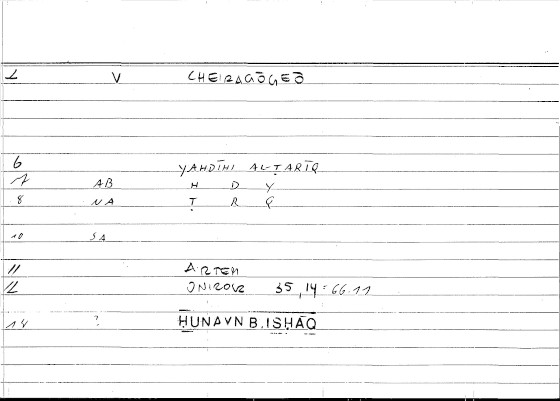 1 V CHEIRAGŌGEŌ
6 YAHDĪHI AL-ṬARĪQ
7 AB H D Y
8 NA Ṭ R Q
10 SA
11 ARTEM
12 ONIROCR 35,14 = 66.11
14 ? ḤUNAYN B. ISḤĀQ